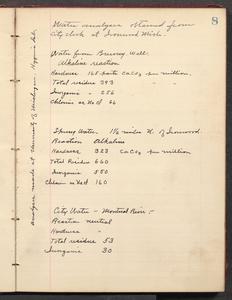 8
Water analyses obtained from
City clerk at Ironwood Mich.
Water from Brewery Well.
Alkaline reaction
Hardness 165 parts CaCO3 per million.
Total residue 393 "
Inorganic " 256
Chlorine as NaCl 66
Spring Water. 1½ miles N. of Ironwood
Reaction Alkaline
Hardness 323 CaCO3 per million
Total Residue 660
Inorganic 550
Chlorin as NaCl 160
City Water - Montreal River :-
Reaction neutral
Hardness "
Total residue 53
Inorganic 30
Analyses made at University of Michigan Hygienic Lab.